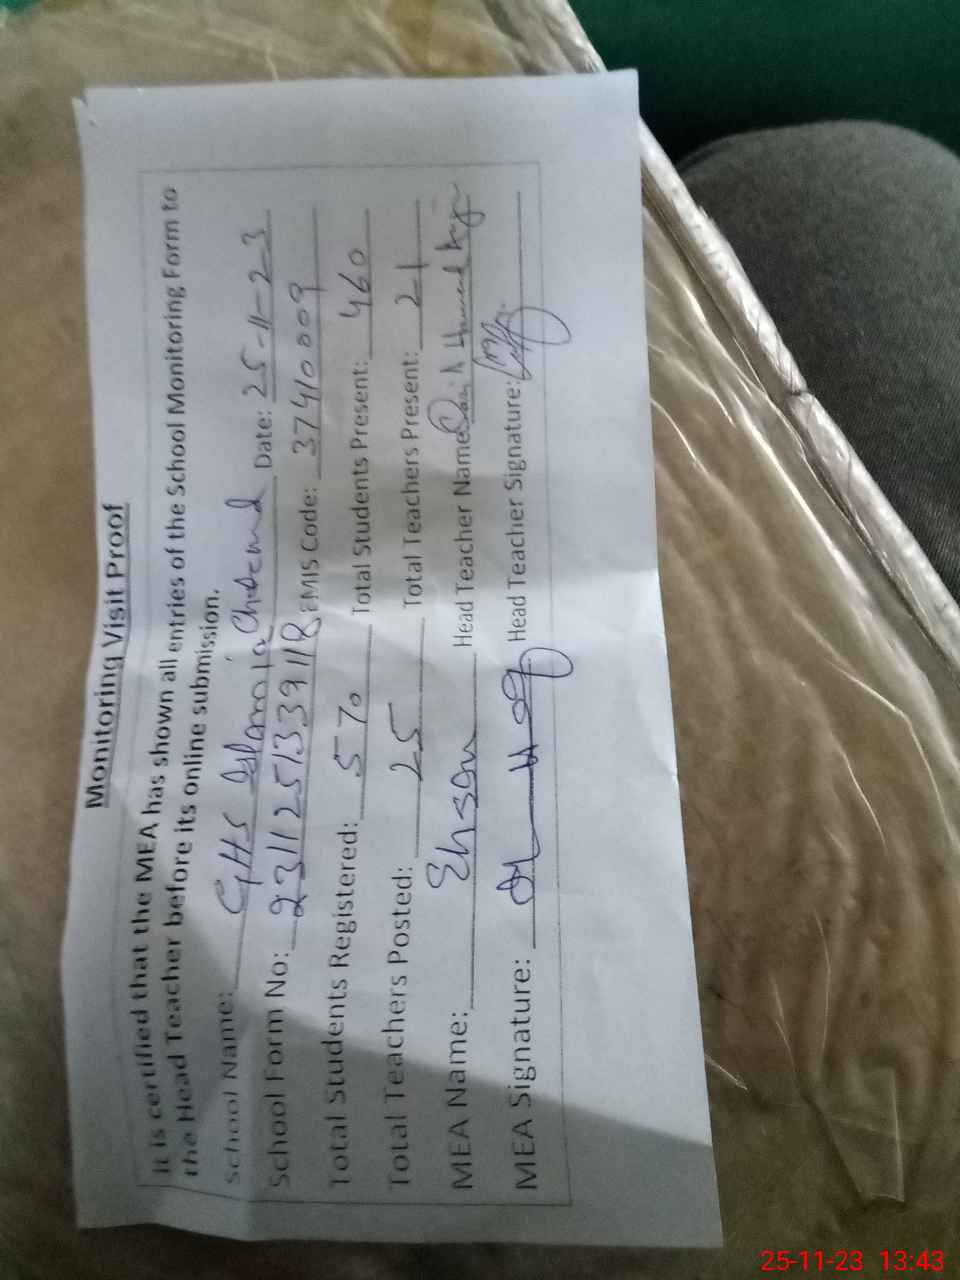 Monitoring Visit Proof
It is certified that the MEA has shown all entries of the School Monitoring Form to
the Head Teacher before its online submission.
School Name: GHS Islamia Date: 25-11-23
School Form No: 2311251339118 EMIS Code: 37410009
Total Students Registered: 570 Total Students Present: 460
Total Teachers Posted: 25 Total Teachers Present: 21
MEA Name: Ehsan Head Teacher Name
MEA Signature: Head Teacher Signature:
25-11-23 13:43